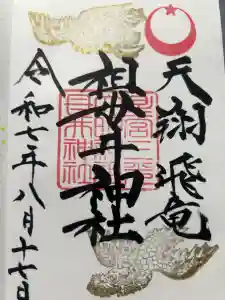 天翔飛竜
祖母井神社
令和七年八月十七日